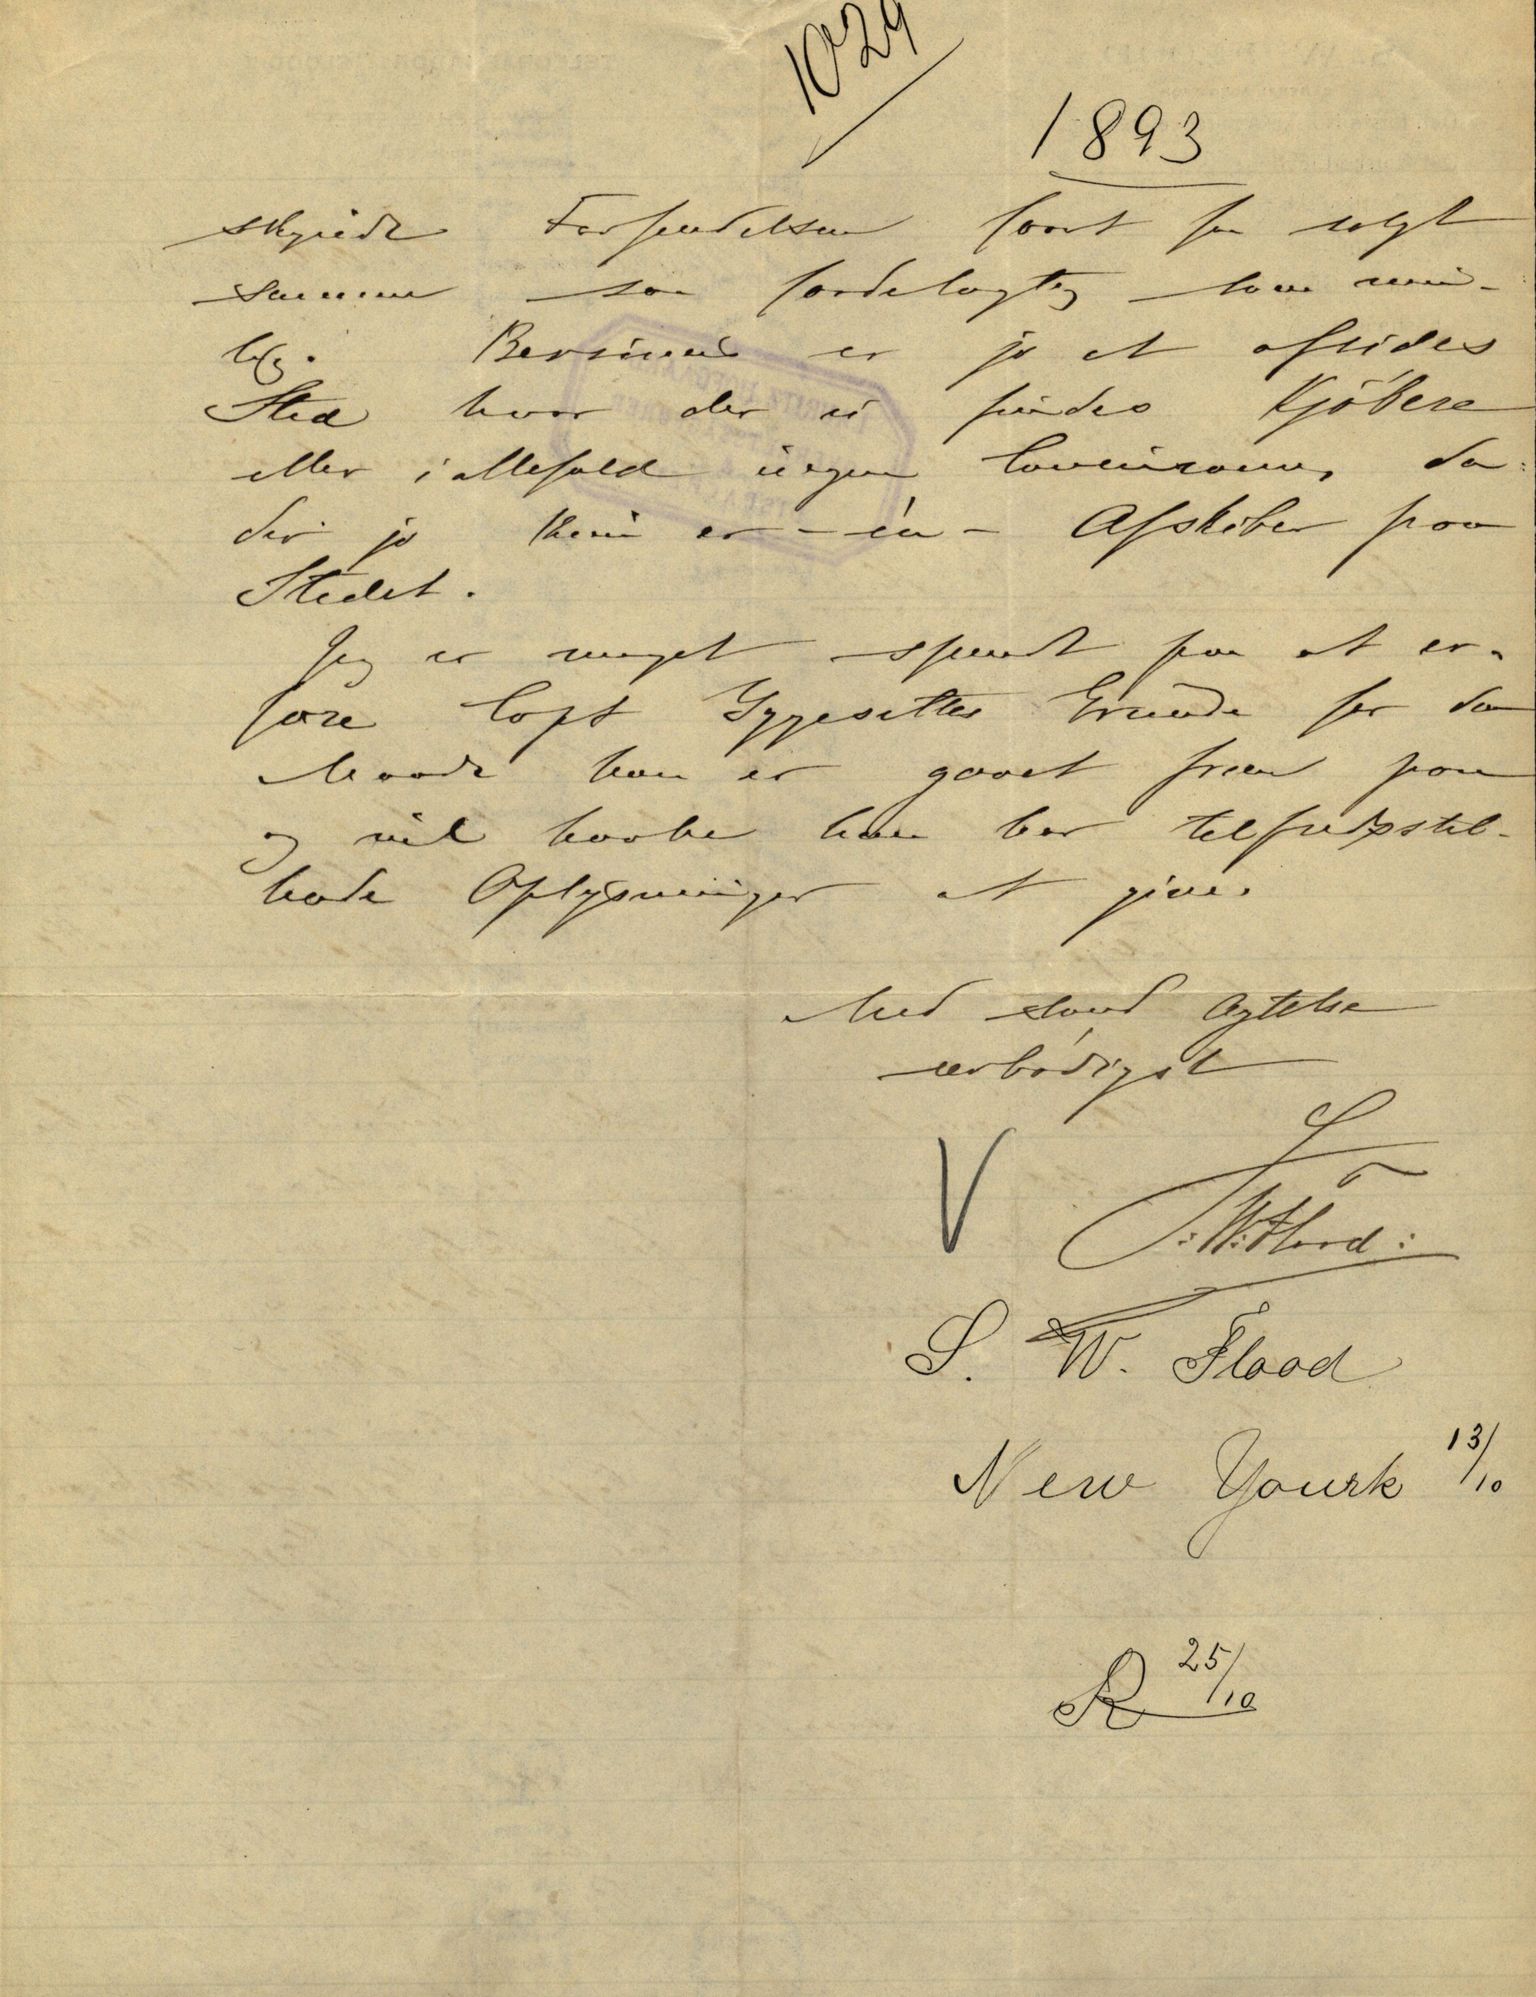 1029
1893
skyndte Forsendelsen samt faa solgt
samme saa fordelagtig som mu-
lig. Bersimis er jo et afsides
Sted hvor der ei findes Kjöbere
eller iallefald ingen Concurrence, da
der jo kun er - én - Afskiber paa
Stedet.
Jeg er meget spændt paa at er-
fare Capt Gjgesettes Grunde for den
Maade han er gaaet frem paa
og vil haabe han har tilfredsstil-
lende Oplysninger at give.
Med sand Agtelse
ærbødigst
S. W. Flood:
S. W. Flood
New Yourk 13/10
R 25/10